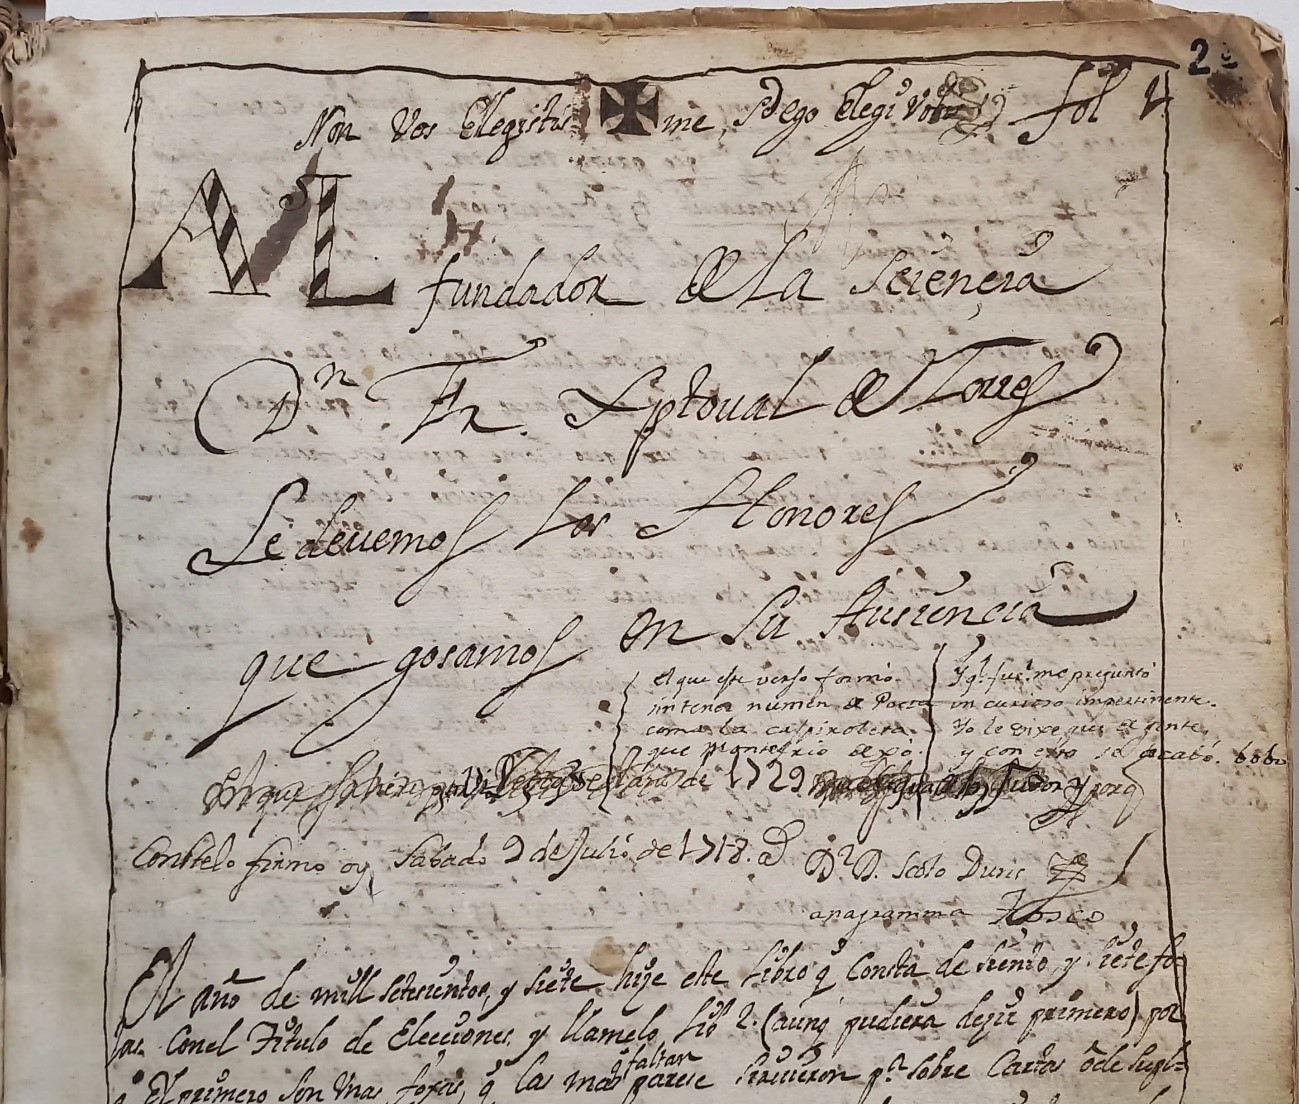 2
Non Vos Elegistis me, Sd ego Elegi Vos fol
AL fundador de La Sciencia
Dn Fr. Xptoual de Torres
Le deuemos los Honores
que gosamos en Su Ausencia
el que este verso formó
sin tener numen de Poeta
coma la calpiroleta
que Montefrio dexo.
Y q. fue. me preguntó
un curioso impertinente.
Yo le dixe que de gente,
y con esto se acabó. bobo
año de 1729
Constelo firmo oy Sabado 9 de Julio de 1718.
Dr. D. Scoto Duns
anagramma Tosco
El año de mill setesientos, y siete hize este Libro q Consta de siento, y siete fo-
jas. Con el Titulo de Elecciones, y llamelo Lio 2. (aunq pudiera dezir primero) por
q El primero son Vnas fojas, q las mas
q faltan
parese siruieron pa. sobre Cartas